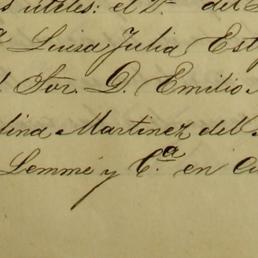 s utiles: el Dr. del
a Luisa Julia Est
l Sor. D. Emilio
lina Martinez del
Lemmé y Ca. en